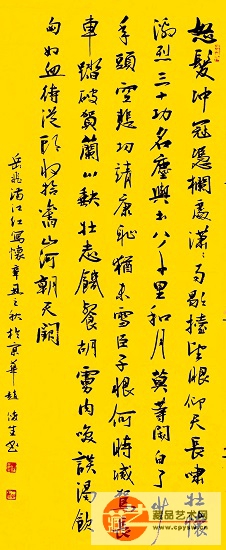 怒髮沖冠憑欄處瀟〻雨歇擡望眼仰天長嘯壯懷
激烈三十功名塵與土八千里和月莫等閑白了少
年頭空悲切靖康恥猶未雪臣子恨何時滅駕長
車踏破賀蘭山缺壯志饑餐胡虜肉笑談渴飲
匈奴血待從頭收拾舊山河朝天闕
岳飛滿江紅寫懷辛丑之秋於京華趙俊生書
藏品艺术网